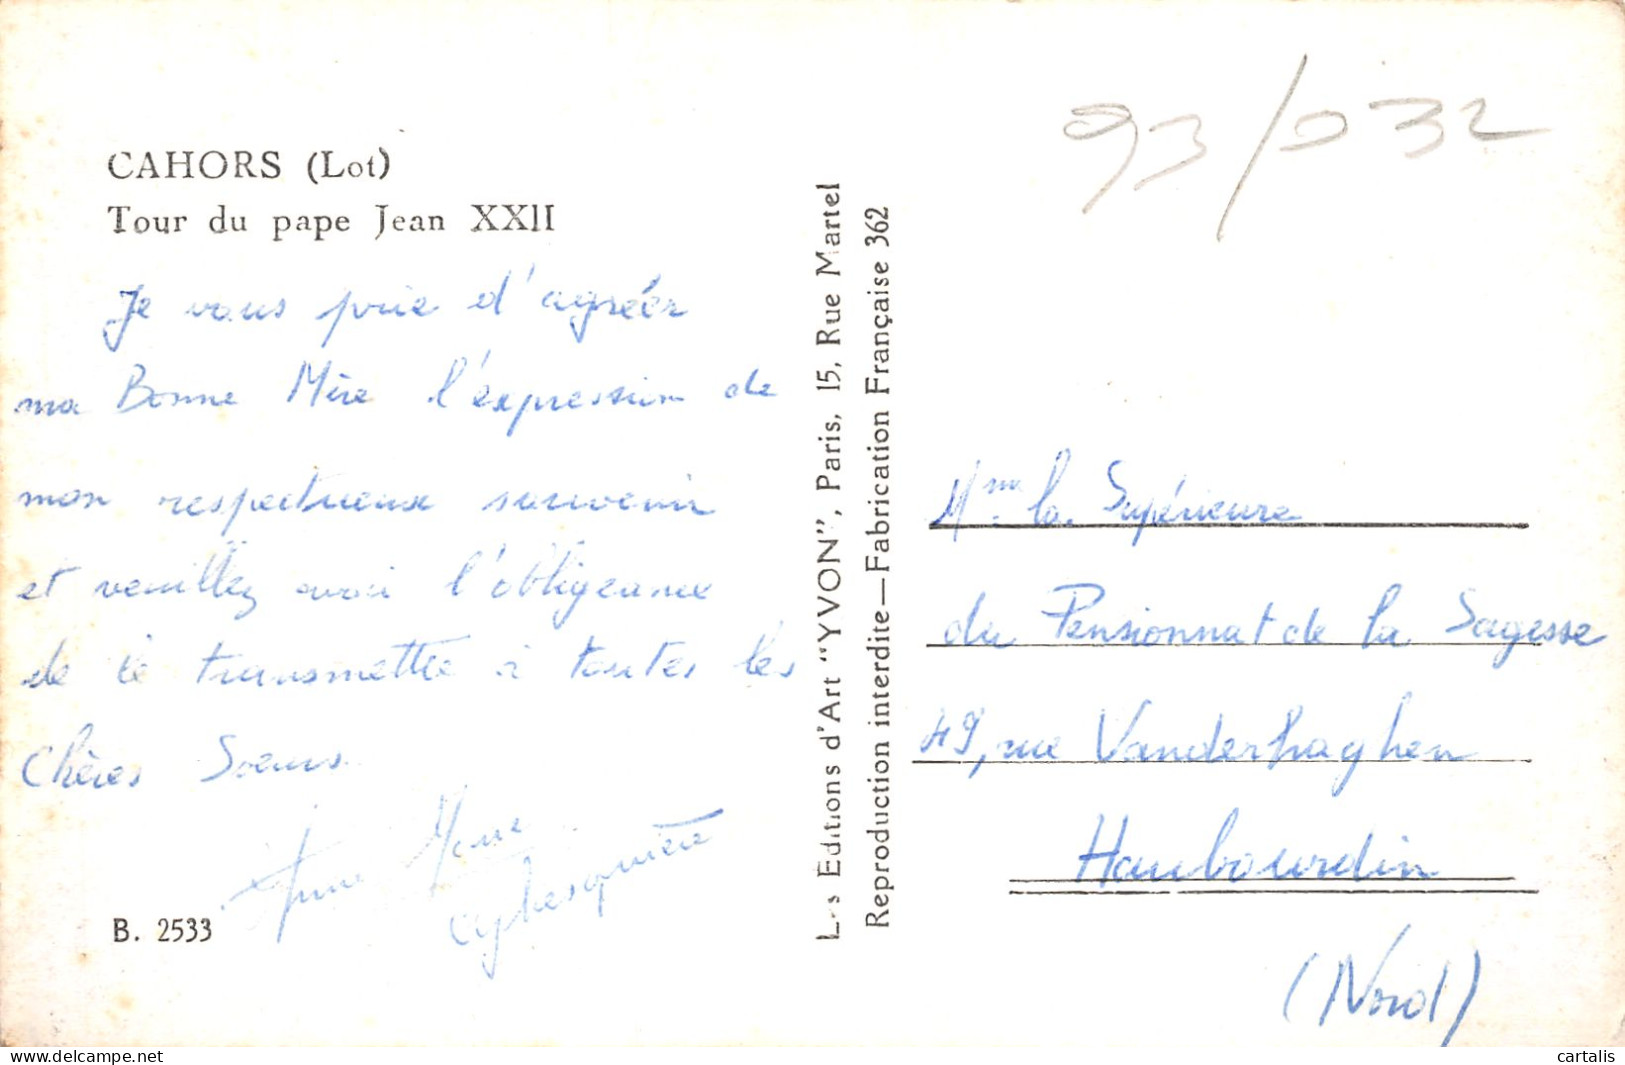 CAHORS (Lot)
Tour du pape Jean XXII
Je vous prie d'agréer
ma Bonne Mère l'expression de
mon respectueux souvenir
et veuillez avoir l'obligeance
de le transmettre à toutes les
Chères Soeurs.
Anne Marie
B. 2533
Les Editions d'Art "YVON", Paris, 15, Rue Martel
Reproduction interdite—Fabrication Française 362
93/032
Mme la Supérieure
du Pensionnat de la Sagesse
49, rue Vanderhaghen
Haubourdin
(Nord)
delcampe.net
cartalis